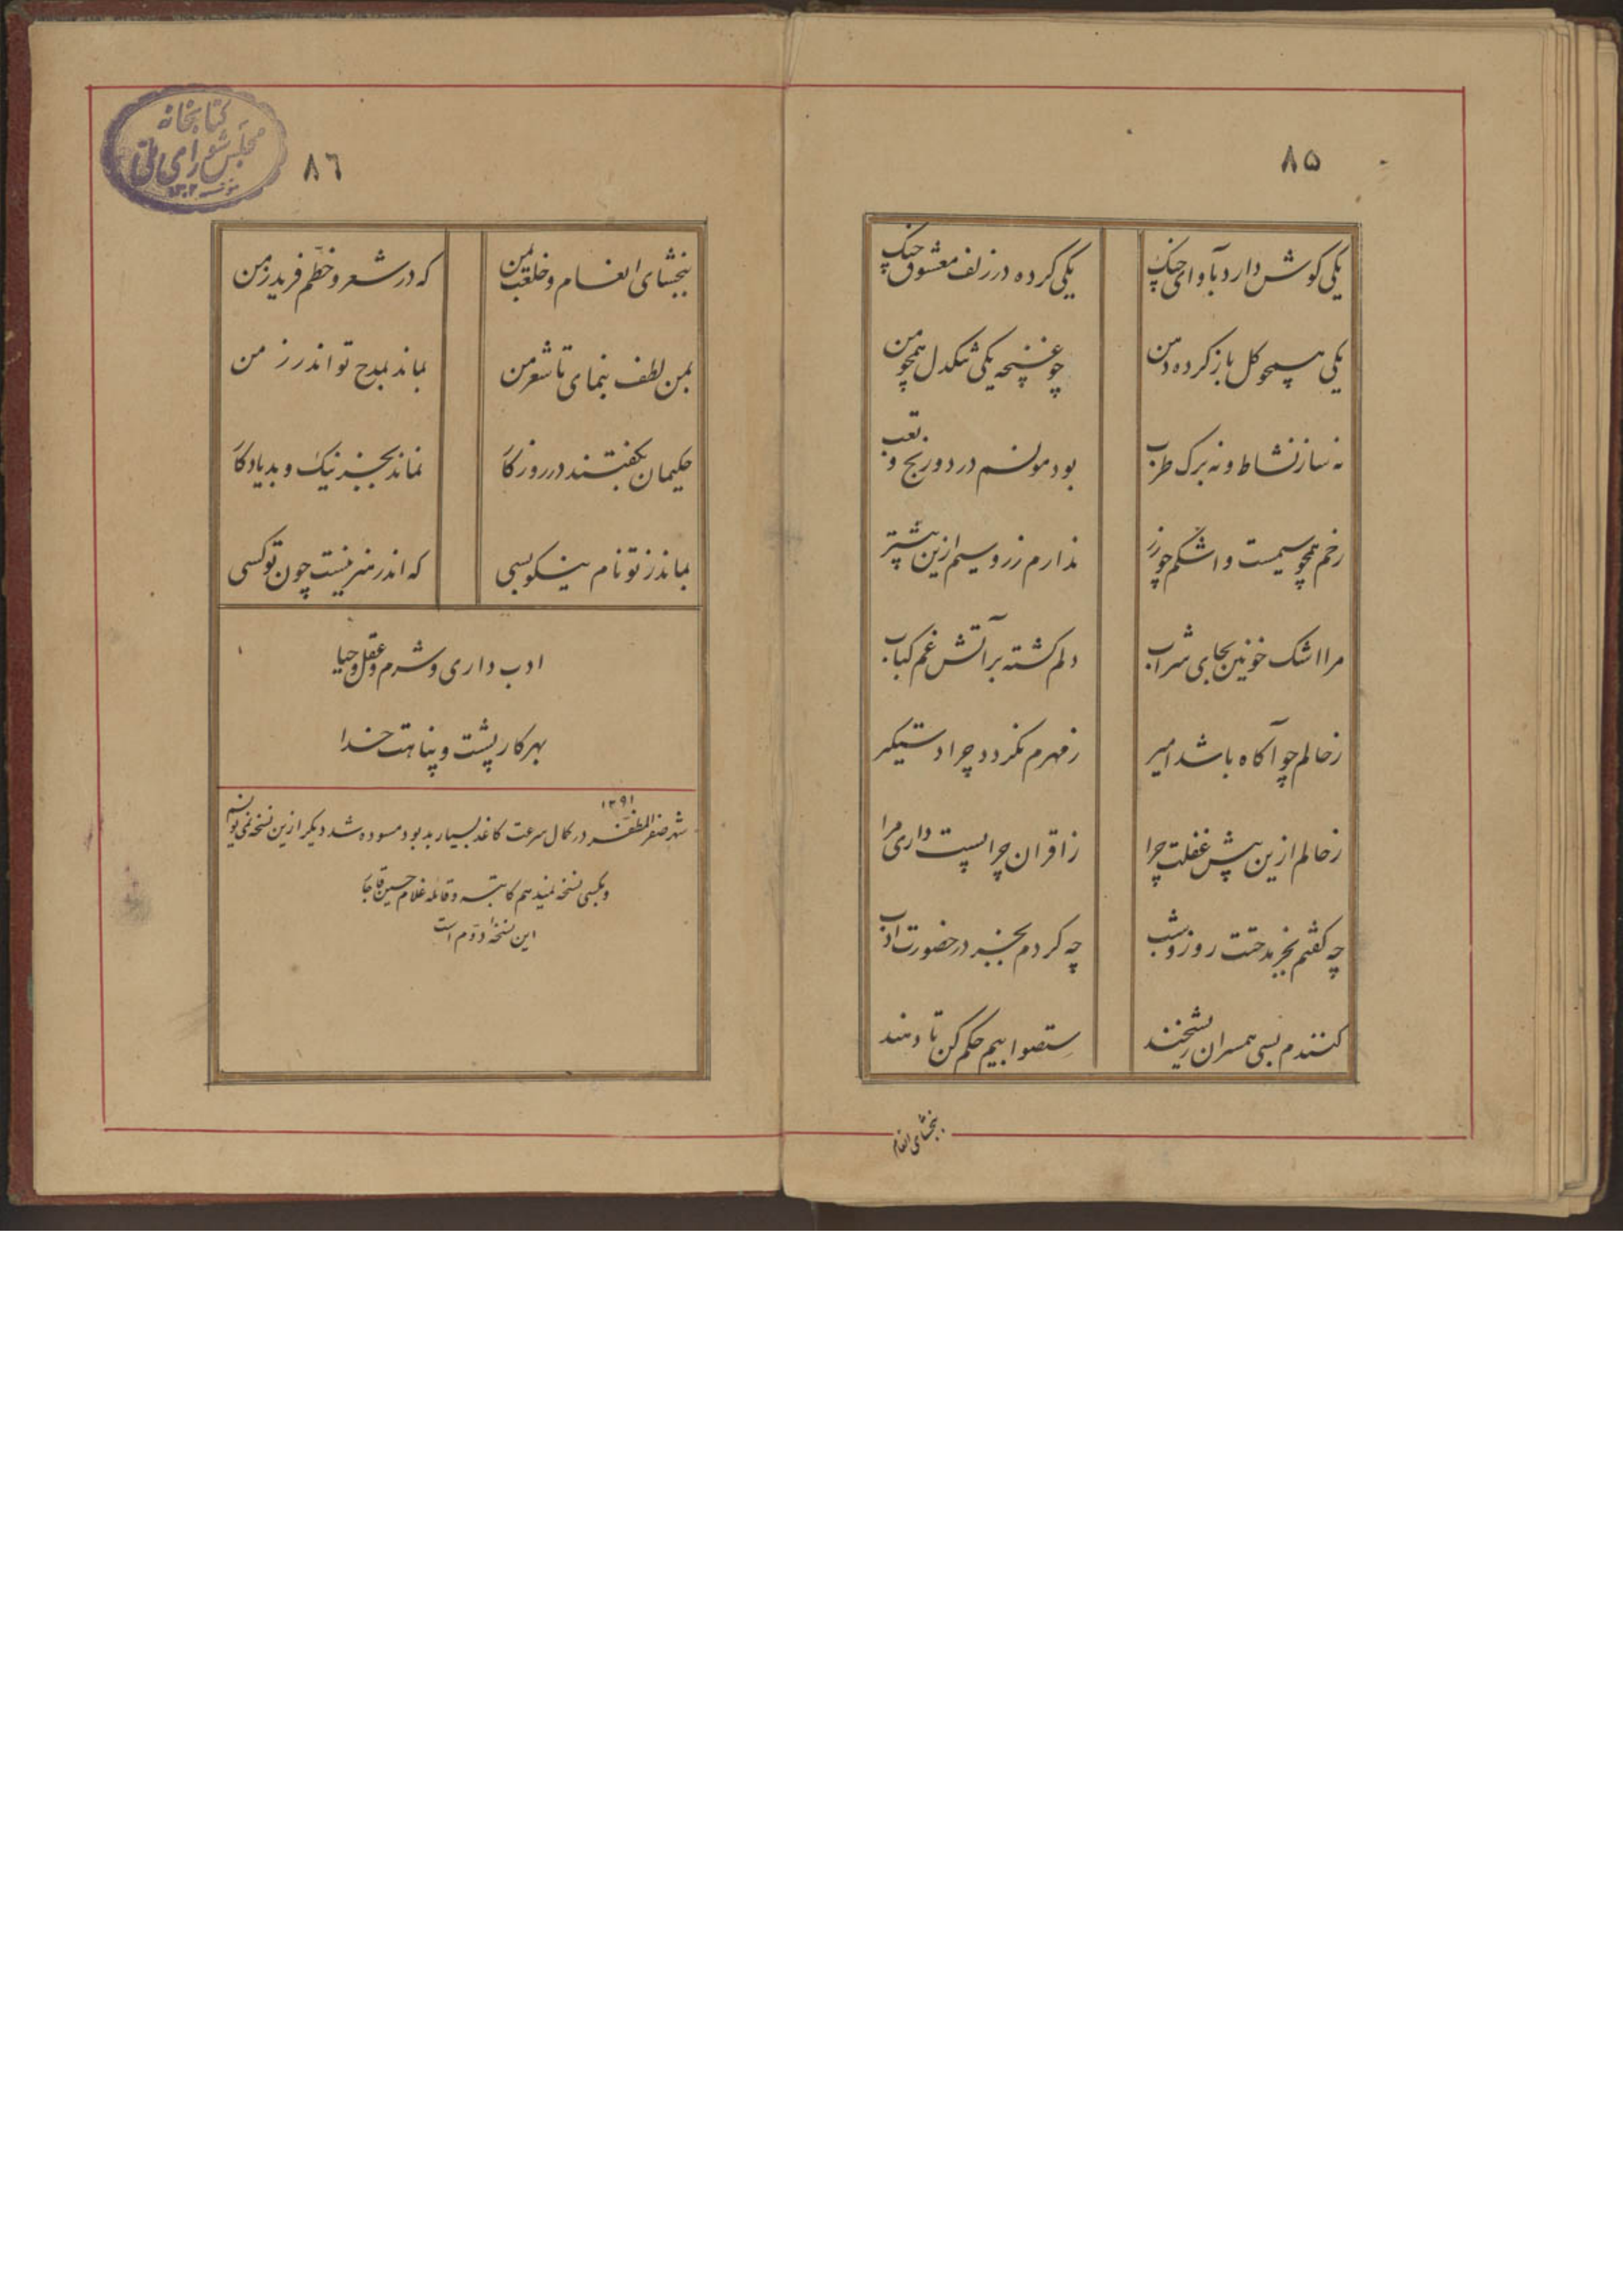 ٨۵
یکی کوش دارد بآوای چنک
یکی کرده در زلف معشوق چنک
یکی همچو کل باز کرده دهن
چو غنچه یکی تنکدل همچو من
نه ساز نشاط و نه برک طرب
بود مونسم درد و رنج و تعب
رخم همچو سیمست و اشکم چو زر
ندارم زر و سیم ازین بیشتر
مرا اشک خونین بجای شراب
دلم کشته بر آتش غم کباب
زحالم چو آکاه باشد امیر
زمهرم نکردد چرا دستکیر
زحالم ازین بیش غفلت چرا
زاقران چرا پست داری مرا
چه کفتم بجز مدحتت روز و شب
چه کردم بجز در حضورت ادب
کنندم بسی همسران ریشخند
ستصوابیم حکم کن تا دهند
ببخشای انعام
٨٦
کتابخانه
مجلس شورای ملی
١٣٠٢
ببخشای انعام و خلعت بمن
که در شعر و خطم فرید زمن
بمن لطف بنمای تا شعر من
بماند بمدح تو اندر زمن
حکیمان بکفتند در روزکا
نماند بجز نیک و بد یادکا
بماند ز تو نام نیکو بسی
که اندر هنر نیست چون تو کسی
ادب داری و شرم و عقل و حیا
بهر کار پشت و پناهت خدا
١٢٩١
شهر صفر المظفر در کمال سرعت کاغذ بسیار بد بود مسوده شد دیکر ازین نسخه نمی نویسم
و بکسی نسخه نمیدهم کاتبه و قائله غلام حسین قاجا
این نسخه دوم است